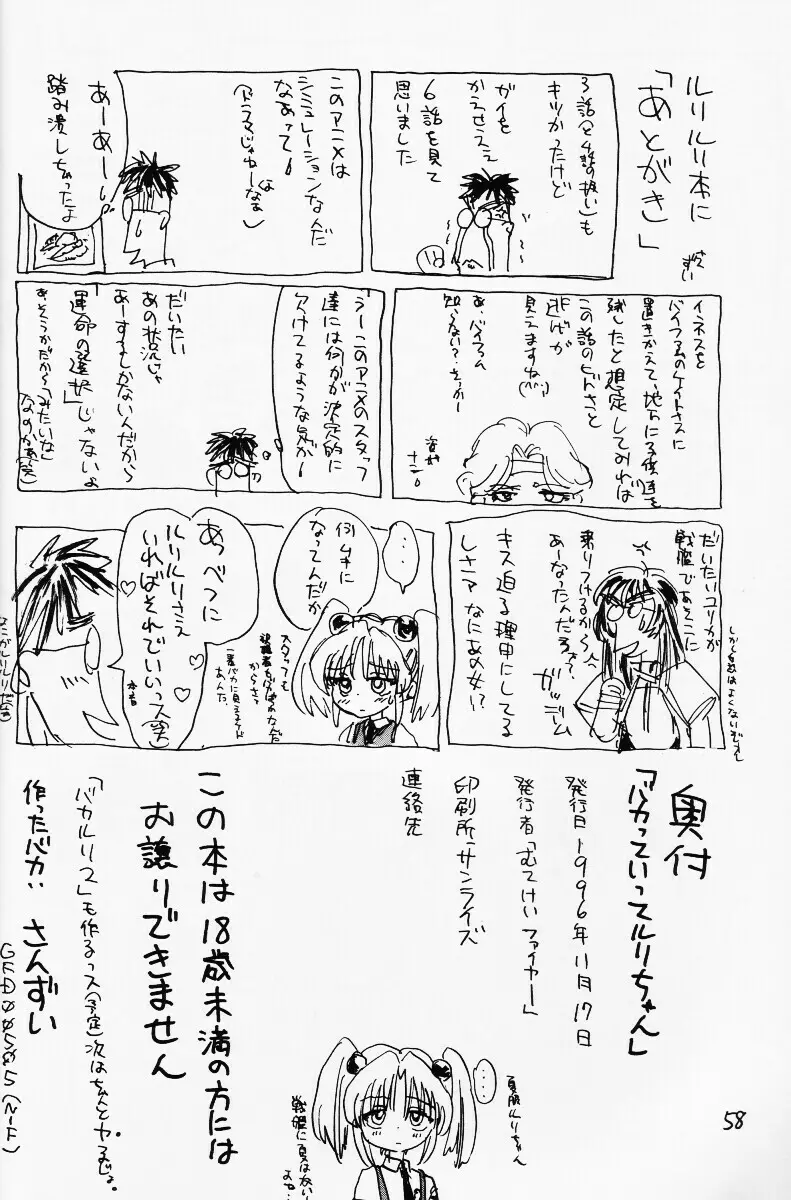 ルリルリ本に
「あとがき」
さんずい
3話や4話の扱いも
キツかったけど
ガイを
かえせえぇ
6話を見て
思いました
このアニメは
シミュレーションなんだ
なあって。
(ドラマじゃねーなぁ)
あーあー
踏み潰しちゃったよ
イネスを
バイファムのケイトさんに
置きかえて、地下に子供達を
残したと想定してみれば
この話のビんさと
逃げが
見えますね(パッパ)
あ、バイファム
知らない?そっかー
うーこのアニメのスタッフ
達には何かが決定的に
欠けてるような気が。
だいたい
あの状況じゃ
あーするしかないんだから
「運命の選択」じゃないよ
あ、そうかだから「みたいな」
なのか(笑)
だいたいユリカが
戦艦であそこに
乗りつけるから
あーなったんだろ?
キス迫る理由にしてる
しさァ なにあの女!?
ガッデーム
…
何ムキに
なってんだか
スタッフも
一番バカに見えるケド
あんた
あっべつに
ルリルリさえ
いればそれでいいっス(笑)
本音
奥付
「バカっていってルリちゃん」
発行日 1996年11月17日
発行者「むてけいファイヤー」
印刷所 サンライズ
連絡先
この本は18歳未満の方には
お譲りできません
「バカルリス」も作るっス(予定)次はちゃんとヤるじょ。
作ったバカ:さんずい
GFD00505(ベート)
…
夏服ルリちゃん
戦艦に夏はない
58